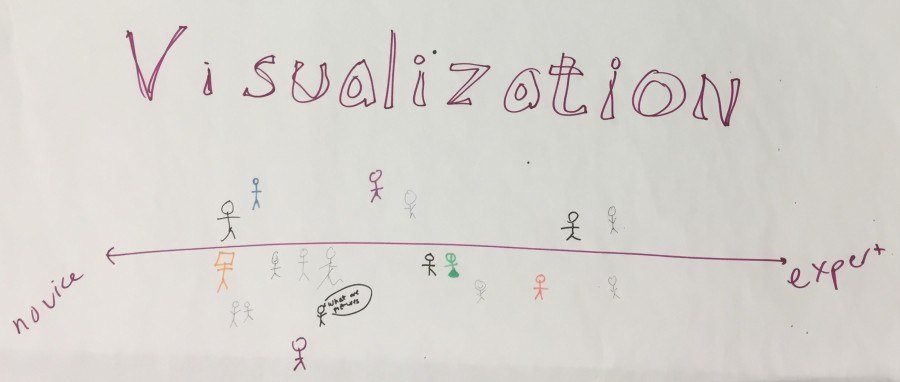 Visualization
novice
expert
what are
pictures